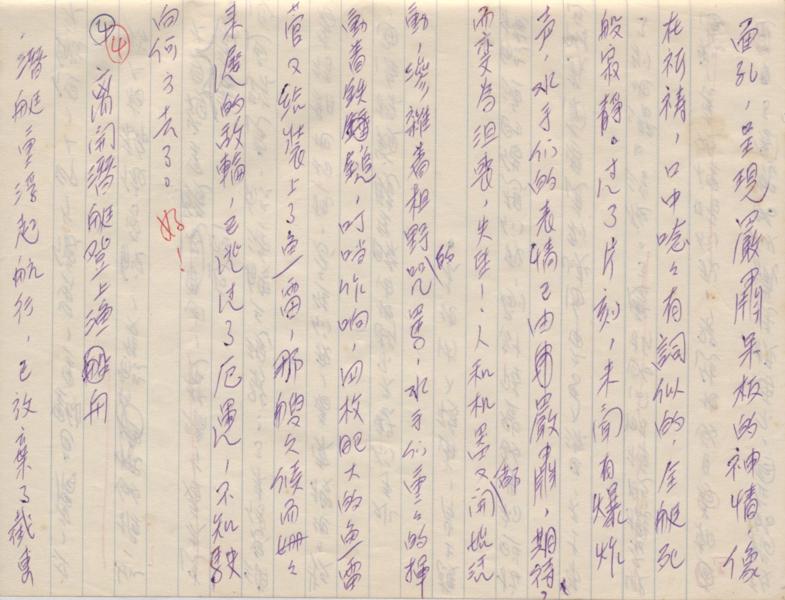 面孔，呈現嚴肅呆板的神情，像
在祈禱，口中唸々有詞似的，全艇死
般寂靜。过了片刻，未聞有爆炸
声，水手们的表情已由嚴肅，期待，
而变為沮喪，失望！人和机器又都開始活
動，參雜着粗野的咒罵，水手们重々的揮
動着鉄鎚，叮噹作响，四枚肥大的魚雷
管又结裝上了魚雷，那艘久候而姍々
来遲的敌輪，已逃过了厄運，不知駛
向何方去了。好！
④ ④ 离開潜艇登上漁船
潜艇重浮起航行，已放棄了截擊